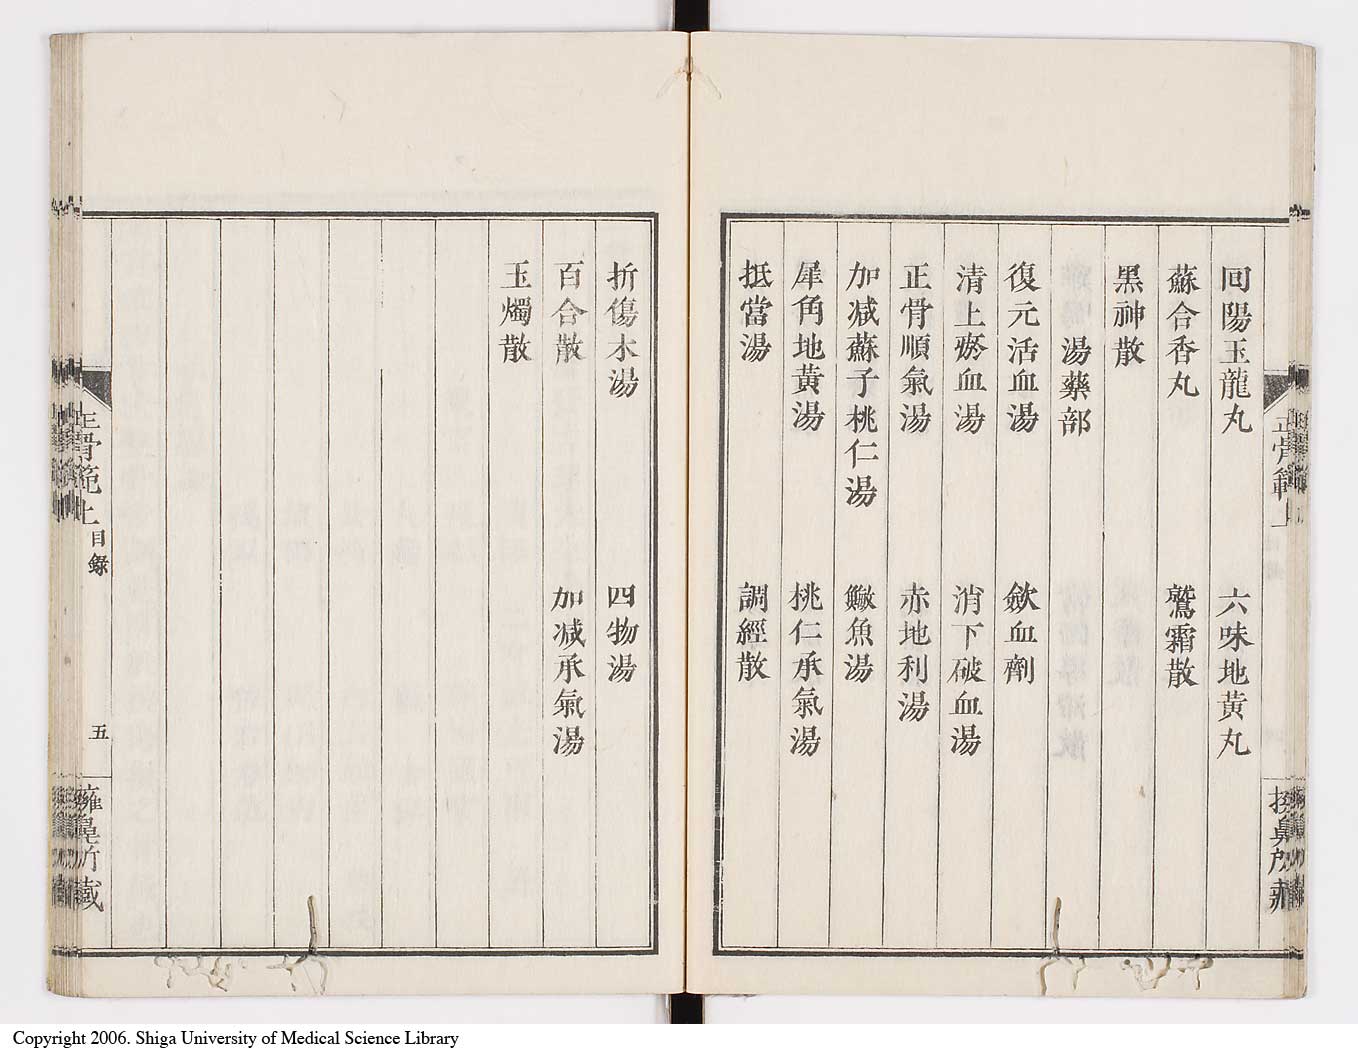 回陽玉龍丸　六味地黃丸
蘇合香丸　鷲霜散
黑神散
湯藥部
復元活血湯　歛血劑
清上瘀血湯　消下破血湯
正骨順氣湯　赤地利湯
加减蘇子桃仁湯　鱖魚湯
犀角地黃湯　桃仁承氣湯
抵當湯　調經散
折傷木湯　四物湯
百合散　加减承氣湯
玉燭散
正骨範上　目錄　五
Copyright 2006. Shiga University of Medical Science Library